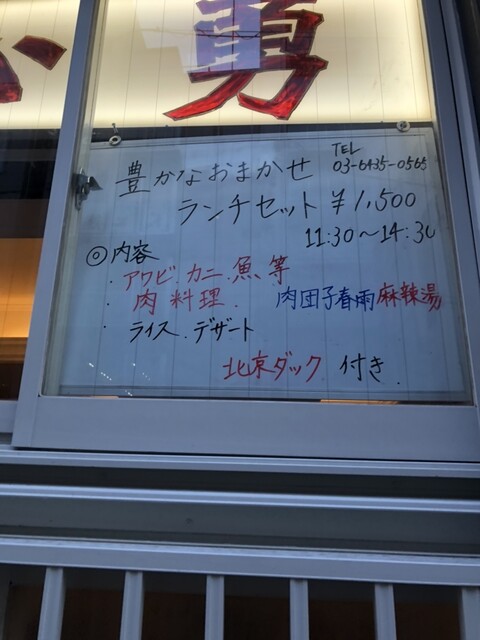 勇
豊かなおまかせ TEL 03-6435-0565
ランチセット ¥1,500
11:30〜14:30
◎内容
・アワビ、カニ、魚 等
・肉料理、 肉団子春雨麻辣湯
・ライス、デザート
北京ダック 付き、